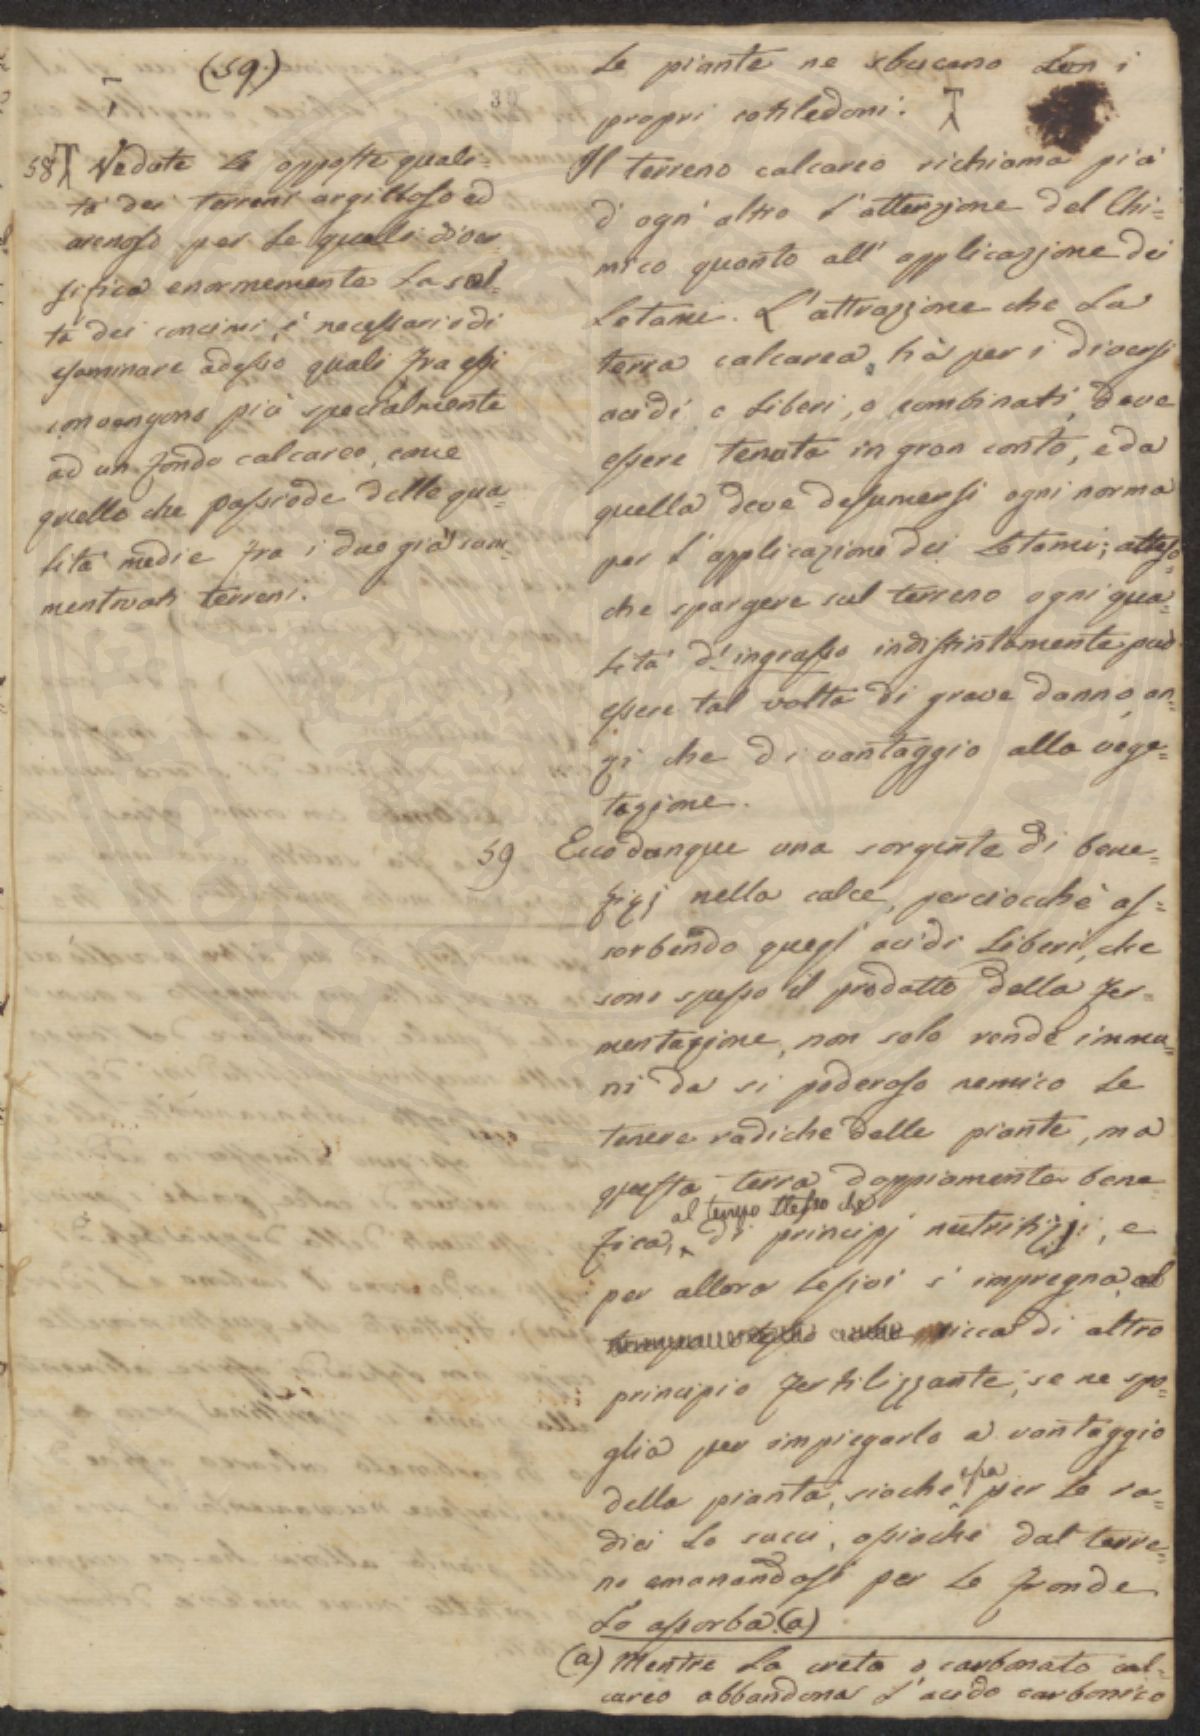 (59.)
30
58 Vedute le opposte quali-
tà dei terreni argilloso ed
arenoso per le quali diver
sifica enormemente la scel-
ta dei concimi, è necessario di
esaminare adesso quali fra essi
convengono più specialmente
ad un fondo calcareo, come
quello che possiede delle qua-
lità medie fra i due già ram-
mentovati terreni.
Le piante ne sbucano con i
propri cotiledoni.
Il terreno calcareo richiama più
d'ogn'altro l'attenzione del Chi=
mico quanto all'applicazione dei
Letami. L'attrazione che la
terra calcarea hà per i diversi
acidi, o liberi, o combinati, deve
essere tenuta in gran conto, e da
quella deve desumersi ogni norma
per l'applicazione dei Letami; atteso
che spargere sul terreno ogni qua=
lità d'ingrasso indistintamente può
essere tal volta di grave danno, an=
zi che di vantaggio alla vege=
tazione.
59 Ecco dunque una sorgente di bene=
fizj nella calce, perciocchè as=
sorbendo quegl'acidi liberi, che
sono spesso il prodotto della fer=
mentazione, non solo rende immu=
ni da si poderoso nemico le
tenere radiche delle piante, ma
questa terra doppiamente bene
al tempo stesso che
fica, di principj nutritizj, e
per allora lesivi s'impregna, al
ricca di altro
principio fertilizzante, se ne spo=
glia per impiegarlo a vantaggio
essa
della pianta, sioche per le ra=
dici lo succi, ossiochè dal terre=
no emanandosi per le fronde
Lo assorba.(a)
(a) Mentre la creta o carbonato cal=
careo abbandona l'acido carbonico